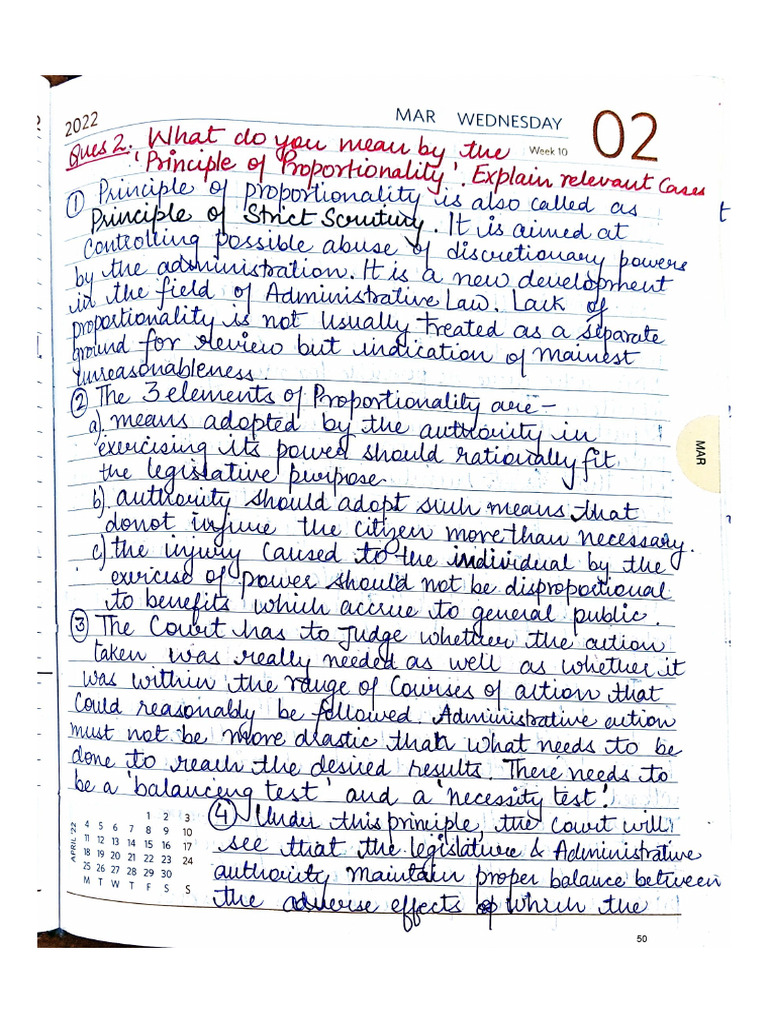 2022
MAR WEDNESDAY 02
Week 10
Ques 2. What do you mean by the
'Principle of Proportionality'. Explain relevant Cases
① Principle of proportionality is also called as
Principle of Strict Scrutury. It is aimed at
Controlling possible abuse of discretionary powers
by the administration. It is a new development
in the field of Administrative Law. Lack of
proportionality is not usually treated as a separate
ground for review but indication of mainest
unreasonableness.
② The 3 elements of Proportionality are –
a). means adopted by the authority in
exercising its power should rationally fit
the legislative purpose.
b). authority should adopt such means that
donot injure the citizen more than necessary.
c). the injury caused to the individual by the
exercise of power should not be disproportional
to benefits which accrue to general public.
③ The Court has to Judge whether the action
taken was really needed as well as whether it
was within the range of Courses of action that
could reasonably be followed. Administrative action
must not be more drastic than what needs to be
done to reach the desired results. There needs to
be a 'balancing test' and a 'necessity test'.
④ Under this principle, the Court will
see that the legislature & Administrative
authority maintain proper balance between
the adverse effects of which the
MAR
APRIL '22
1 2 3
4 5 6 7 8 9 10
11 12 13 14 15 16 17
18 19 20 21 22 23 24
25 26 27 28 29 30
M T W T F S S
50